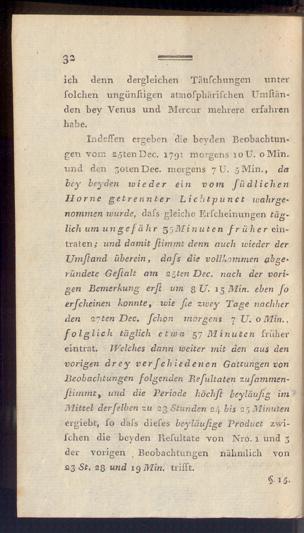 32
ich denn dergleichen Täuſchungen unter
ſolchen ungünſtigen atmoſphäriſchen Umſtän-
den bey Venus und Mercur mehrere erfahren
habe.
Indeſſen ergeben die beyden Beobachtun-
gen vom 25ten Dec. 1791 morgens 10 U. 0 Min.
und den 30ten Dec. morgens 7 U. 5 Min., da
bey beyden wieder ein vom ſüdlichen
Horne getrennter Lichtpunct wahrge-
nommen wurde, daſs gleiche Erſcheinungen täg-
lich um ungefähr 35 Minuten früher ein-
traten; und damit ſtimmt denn auch wieder der
Umſtand überein, daſs die vollkommen abge-
ründete Geſtalt am 25ten Dec. nach der vori-
gen Bemerkung erſt um 8 U. 15 Min. eben ſo
erſcheinen konnte, wie ſie zwey Tage nachher
den 27ten Dec. ſchon morgens 7 U. 0 Min.,
folglich täglich etwa 37 Minuten früher
eintrat. Welches dann weiter mit den aus den
vorigen drey verſchiedenen Gattungen von
Beobachtungen folgenden Reſultaten zuſammen-
ſtimmt, und die Periode höchſt beyläufig im
Mittel derſelben zu 23 Stunden 24 bis 25 Minuten
ergiebt, ſo daſs dieſes beyläufige Product zwi-
ſchen die beyden Reſultate von Nro. 1 und 3
der vorigen Beobachtungen nähmlich von
23 St. 28 und 19 Min. trifft.
§. 15.